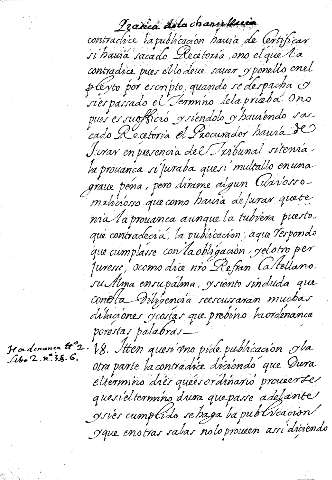 Pratica de la chancilleria
contradice la publicacion havia de Certificar
si havia sacado Recetoria, o no el que la
contradice pues ello deve saver, y ponello en el
pleyto por escripto, quando se despacha y
si es passado el Termino de la prueba o no
pues es su officio, y siendolo, y haviendo sa-
cado Recetoria el Procurador havia de
Jurar en presencia del Tribunal si tenia
la provança si Juraba que si multallo en una
grave pena, pero dirame algun Curiosso
malicioso que como havia de Jurar que te-
nia la provança aunque la tubiera puesto
que contradecia la publicacion, a que respondo
que cumplasse con la obligacion, y el otro per
Juresse, o como dice nro Refran Castellano
su Alma en su palma, y siento sin duda que
con esta Diligencia se escussaran muchas
dilaçiones y costas que prebino la ordenança
por estas palabras
18. Itten que si uno pide publicacion y la
otra parte la contradice diciendo que dura
el termino dies que es ordinario proveerse
que si el termino dura que passe adelante
y si es cumplido se haga la publicacion
y que en otras salas no lo proveen assi diciendo